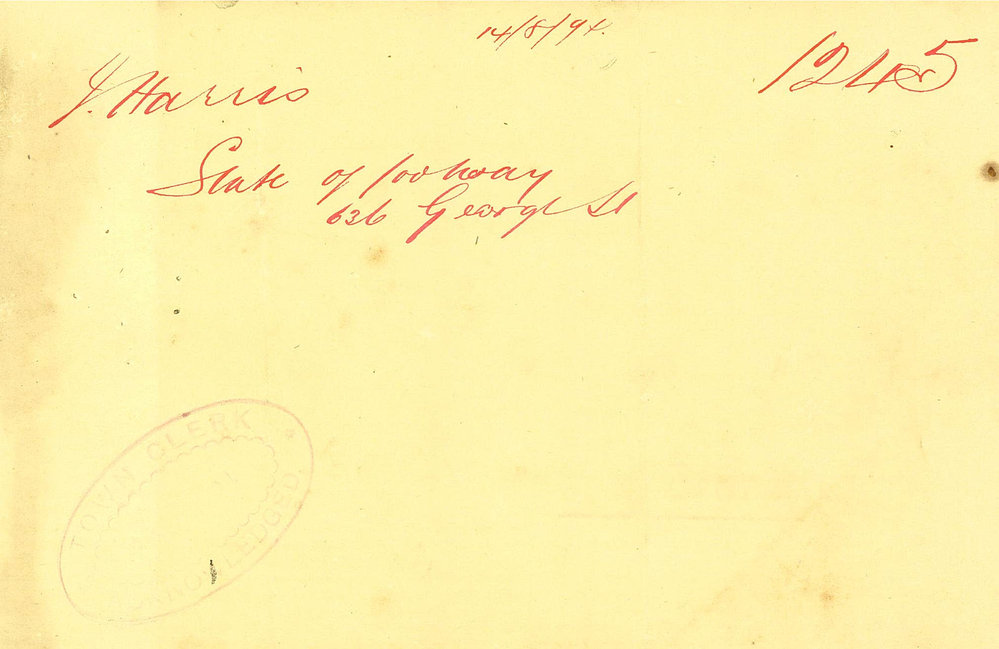 14/8/94.
1245
J. Harris
State of footway
636 George St
TOWN CLERK
ACKNOWLEDGED.